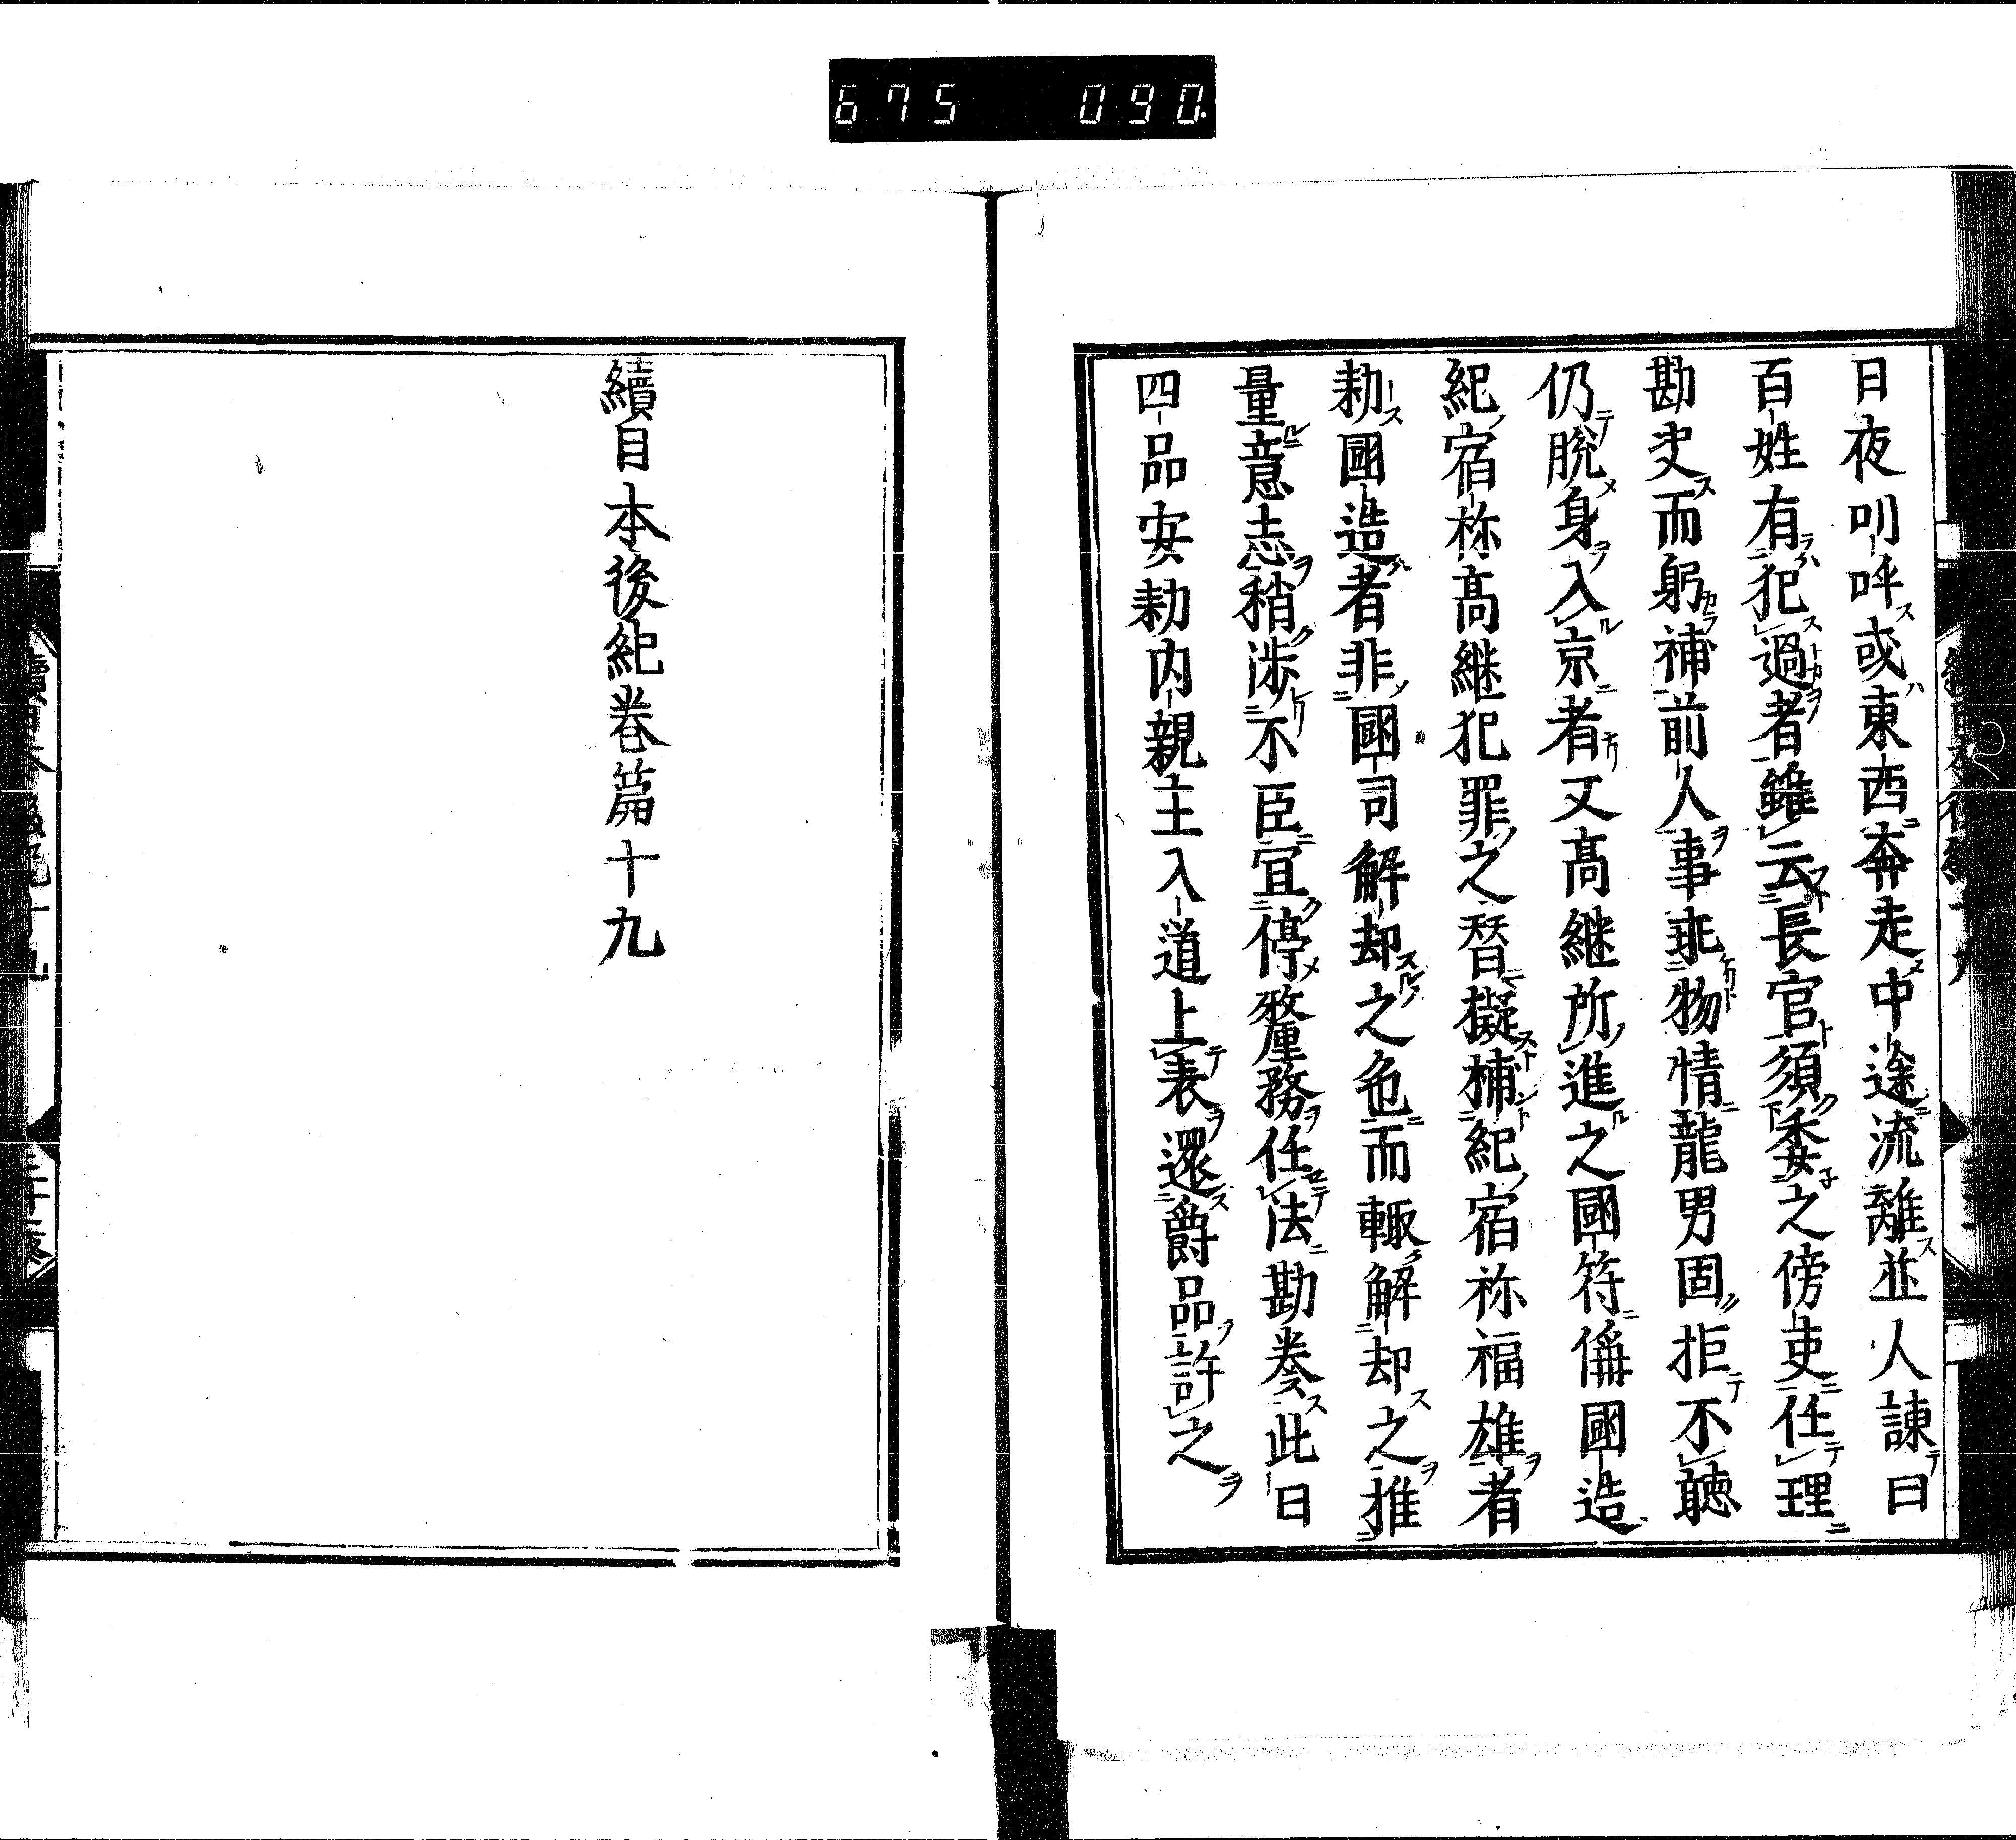 675 090.
日夜叫呼或東西奔走中途流離並人諫曰
百姓有犯過者雖云長官須委之傍吏任理
勘史而躬補前人事乖物情龍男固拒不聴
仍脱身入京者又髙継所進之國符偁國造
紀宿祢髙継犯罪之替擬補紀宿祢福雄者
勅國造者非國司解却之色而輙解却之推
量意志稍渉不臣宜停釐務任法勘奏此日
四品安勅内親王入道上表還爵品許之
續日本後紀巻篇十九